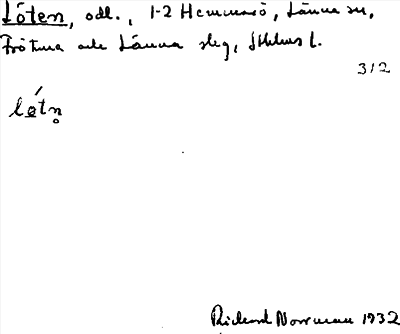 Lóten, odl., 1-2 Hemmarsö, Länna sn,
Frötuna och Länna slg, Sthlms l.
312
lǿtn̥
Rickard Norrman 1932